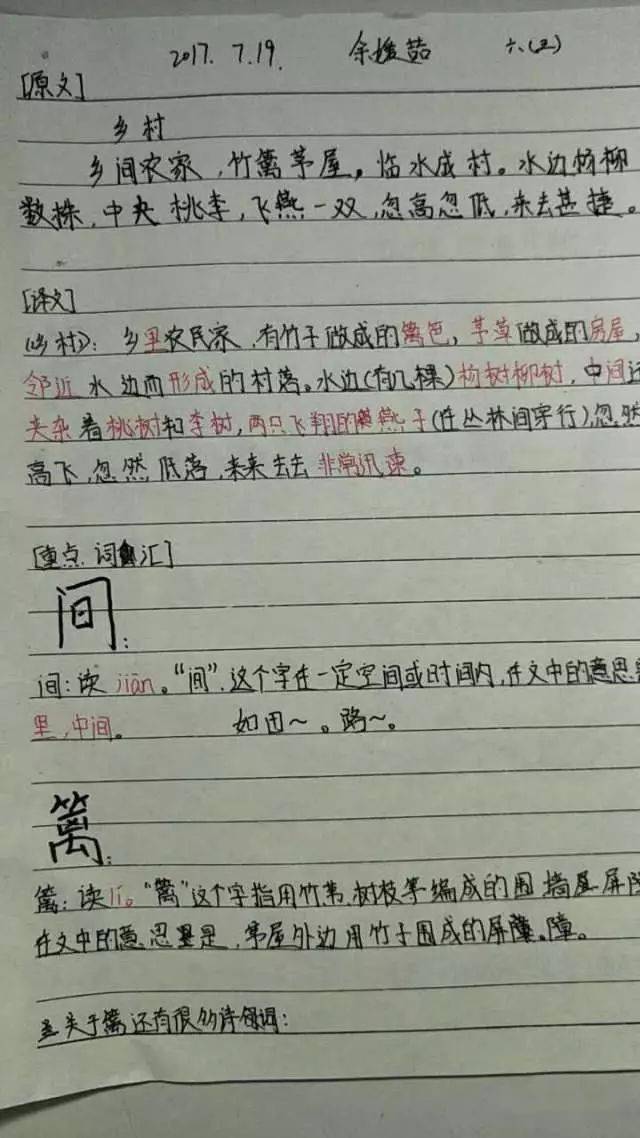 2017. 7.19. 余媛喆 六.(2)
[原文]
乡村
乡间农家,竹篱茅屋。临水成村。水边杨柳
数株,中央桃李,飞燕一双,忽高忽低,来去甚捷。
[译文]
《乡村》:乡里农民家,有竹子做成的篱笆,茅草做成的房屋,
邻近水边而形成的村落。水边(有几棵)杨树柳树,中间还
夹杂着桃树和李树,两只飞翔的燕子(在丛林间穿行)忽然
高飞,忽然低落,来来去去非常迅速。
[重点词汇]
间:
间:读jiān。“间”,这个字在一定空间或时间内,在文中的意思
里,中间。 如田~。路~。
篱:
篱:读lí。“篱”这个字指用竹苇、树枝等编成的围墙屏障
在文中的意思是,茅屋外边用竹子围成的屏障。
关于篱还有很多诗句词: